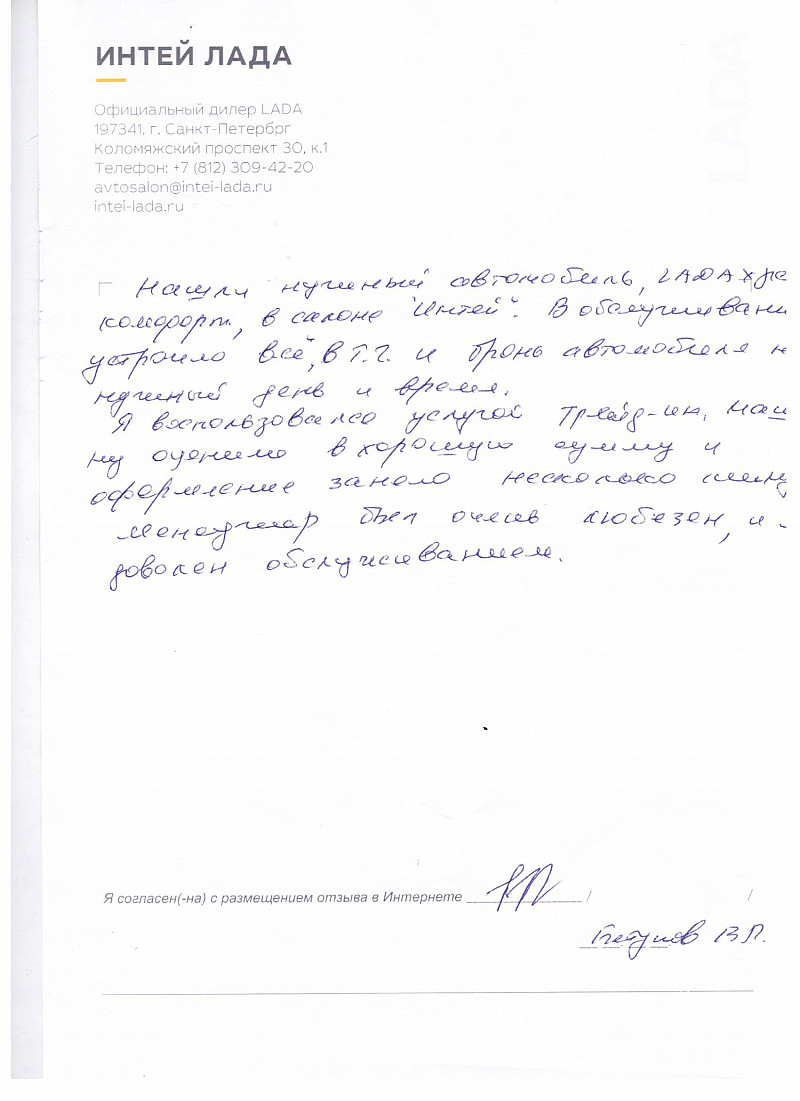 ИНТЕЙ ЛАДА
Официальный дилер LADA
197341, г. Санкт-Петербрг
Коломяжский проспект 30, к.1
Телефон: +7 (812) 309-42-20
avtosalon@intei-lada.ru
intei-lada.ru
Нашли нужный автомобиль, LADA
комфорт, в салоне "Интей". В обслуживани
устроило всё, в т.ч. и бронь автомобиля н
нужный день и время.
Я воспользовался услугой Трейд-ин, наш
ну оценили в хорошую сумму и
оформление заняло несколько мину
Менеджер был очень любезен, и
доволен обслуживанием.
Я согласен(-на) с размещением отзыва в Интернете / /
В.П.